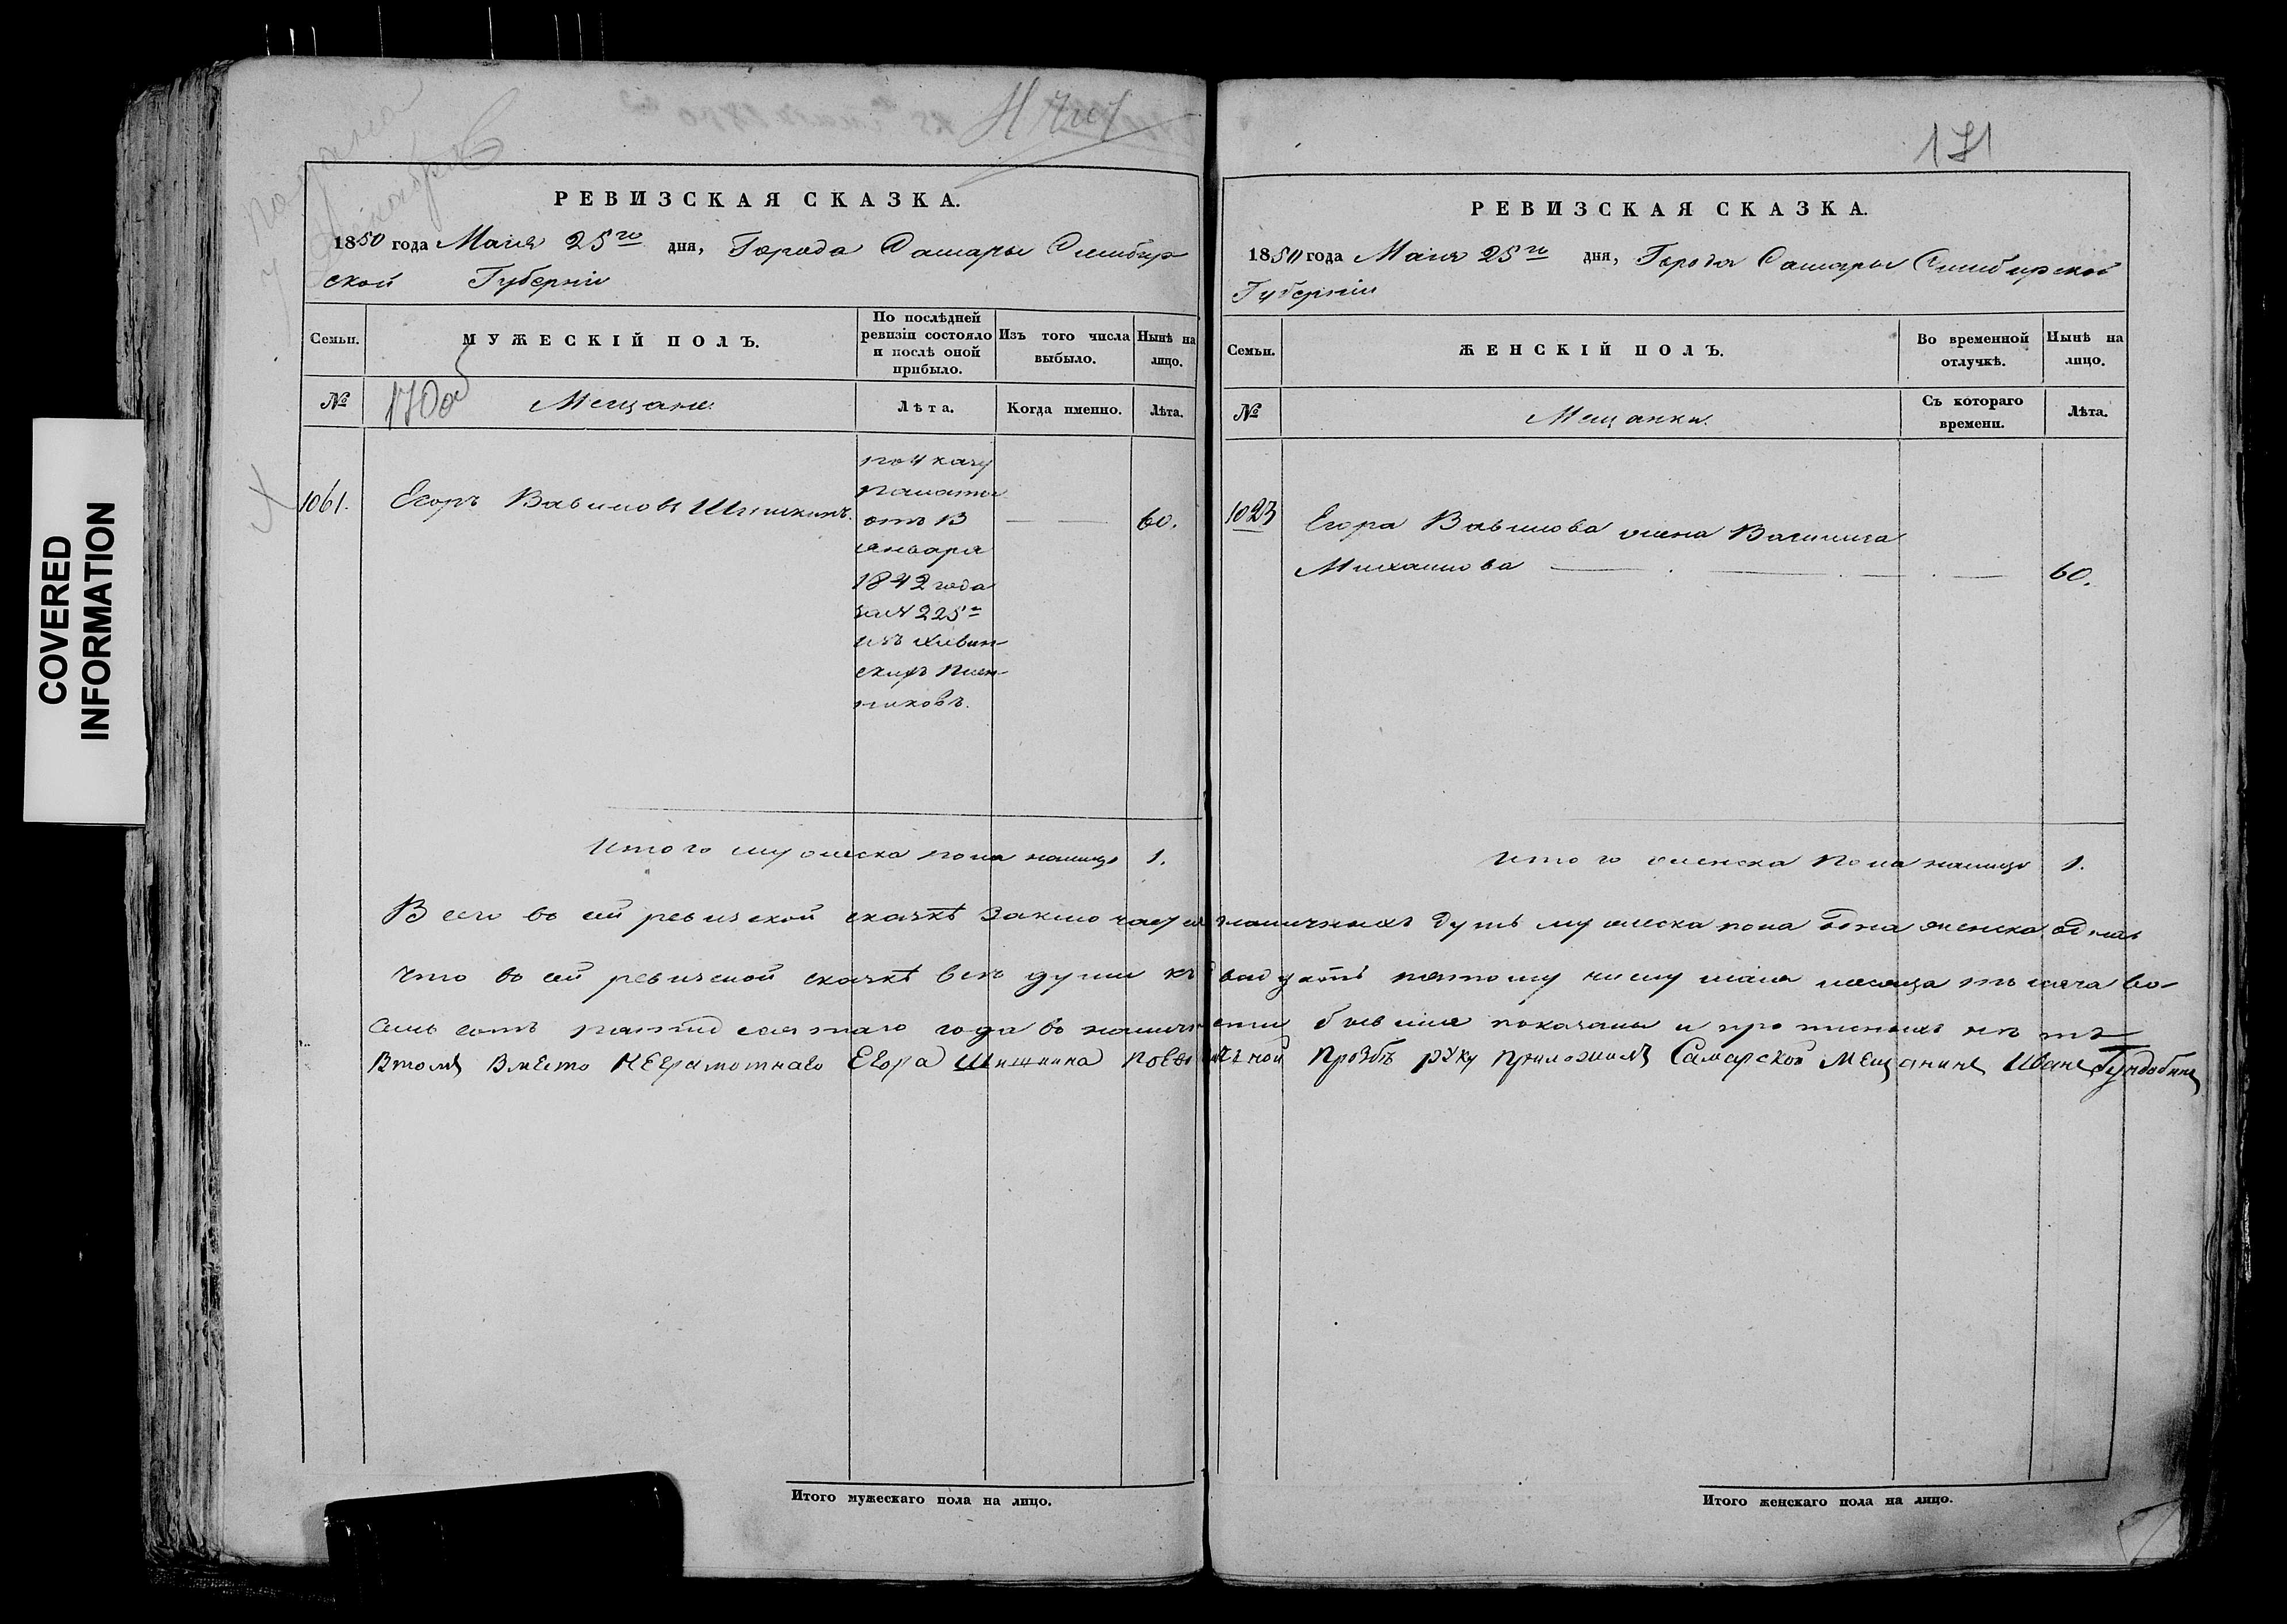 COVERED
INFORMATION
РЕВИЗСКАЯ СКАЗКА.
1850 года Маія 25го дня, Города Самары Симбир
ской Губерніи
Семьи.
МУЖЕСКІЙ ПОЛЪ.
По послѣдней ревизіи состояло и послѣ оной прибыло.
Изъ того числа выбыло.
Нынѣ на лицо.
№
Мещане.
Лѣта.
Когда именно.
Лѣта.
1061.
Егоръ Вавиловъ Шишкинъ.
по указу
палаты
отъ 13
января
1842 года
за № 225м
изъ хивин-
скихъ плен-
никовъ.
60.
Итого мужеска пола налицо 1.
171
РЕВИЗСКАЯ СКАЗКА.
1850 года Маія 25го дня, Города Самары Симбирской
Губерніи
Семьи.
ЖЕНСКІЙ ПОЛЪ.
Во временной отлучкѣ.
Нынѣ на лицо.
№
Мещанки.
Съ котораго времени.
Лѣта.
1023
Егора Вавилова жена
Михаилова
60.
Итого женска пола налицо 1.
Всего въ сей ревизской сказкѣ заключается наличныхъ душъ мужеска пола одна женска одна
что въ сей ревизской сказкѣ всѣ души къ двадцать пятому числу маія месяца тысяча во-
семь сотъ пятидесятаго года въ наличности бывшія показаны и прописныхъ нѣтъ
Втомъ вместо неграмотнаго Егора Шишкина прозбѣ руку приложилъ Самарской мещанинъ Иванъ
Итого мужескаго пола на лицо.
Итого женскаго пола на лицо.